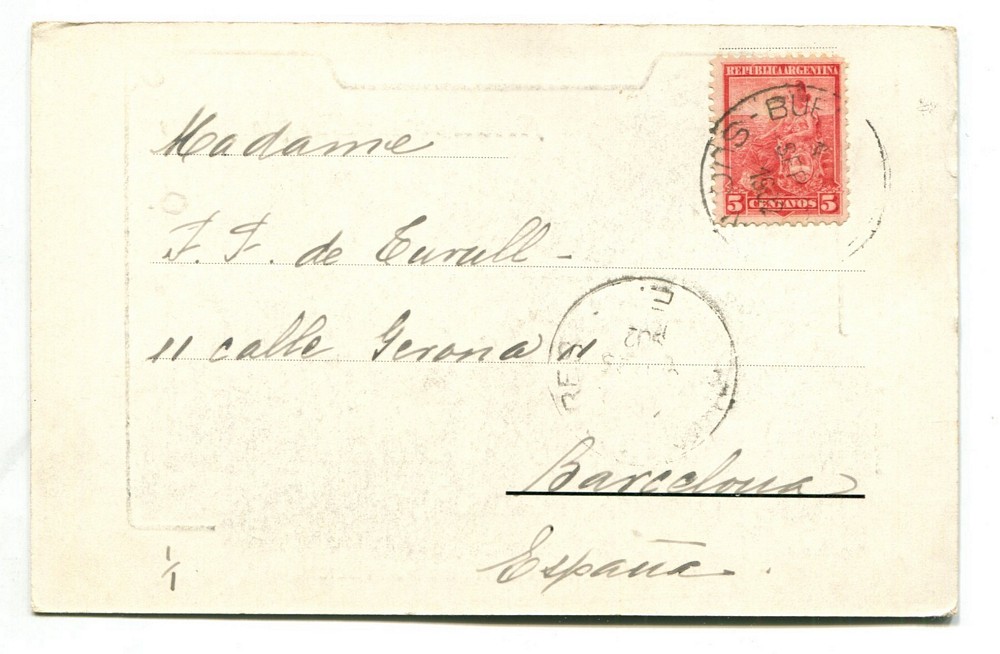 REPÚBLICA ARGENTINA
5 CENTAVOS 5
Madame
F. F. de Turull -
11 calle Gerona 11
Barcelona
España.
1/1